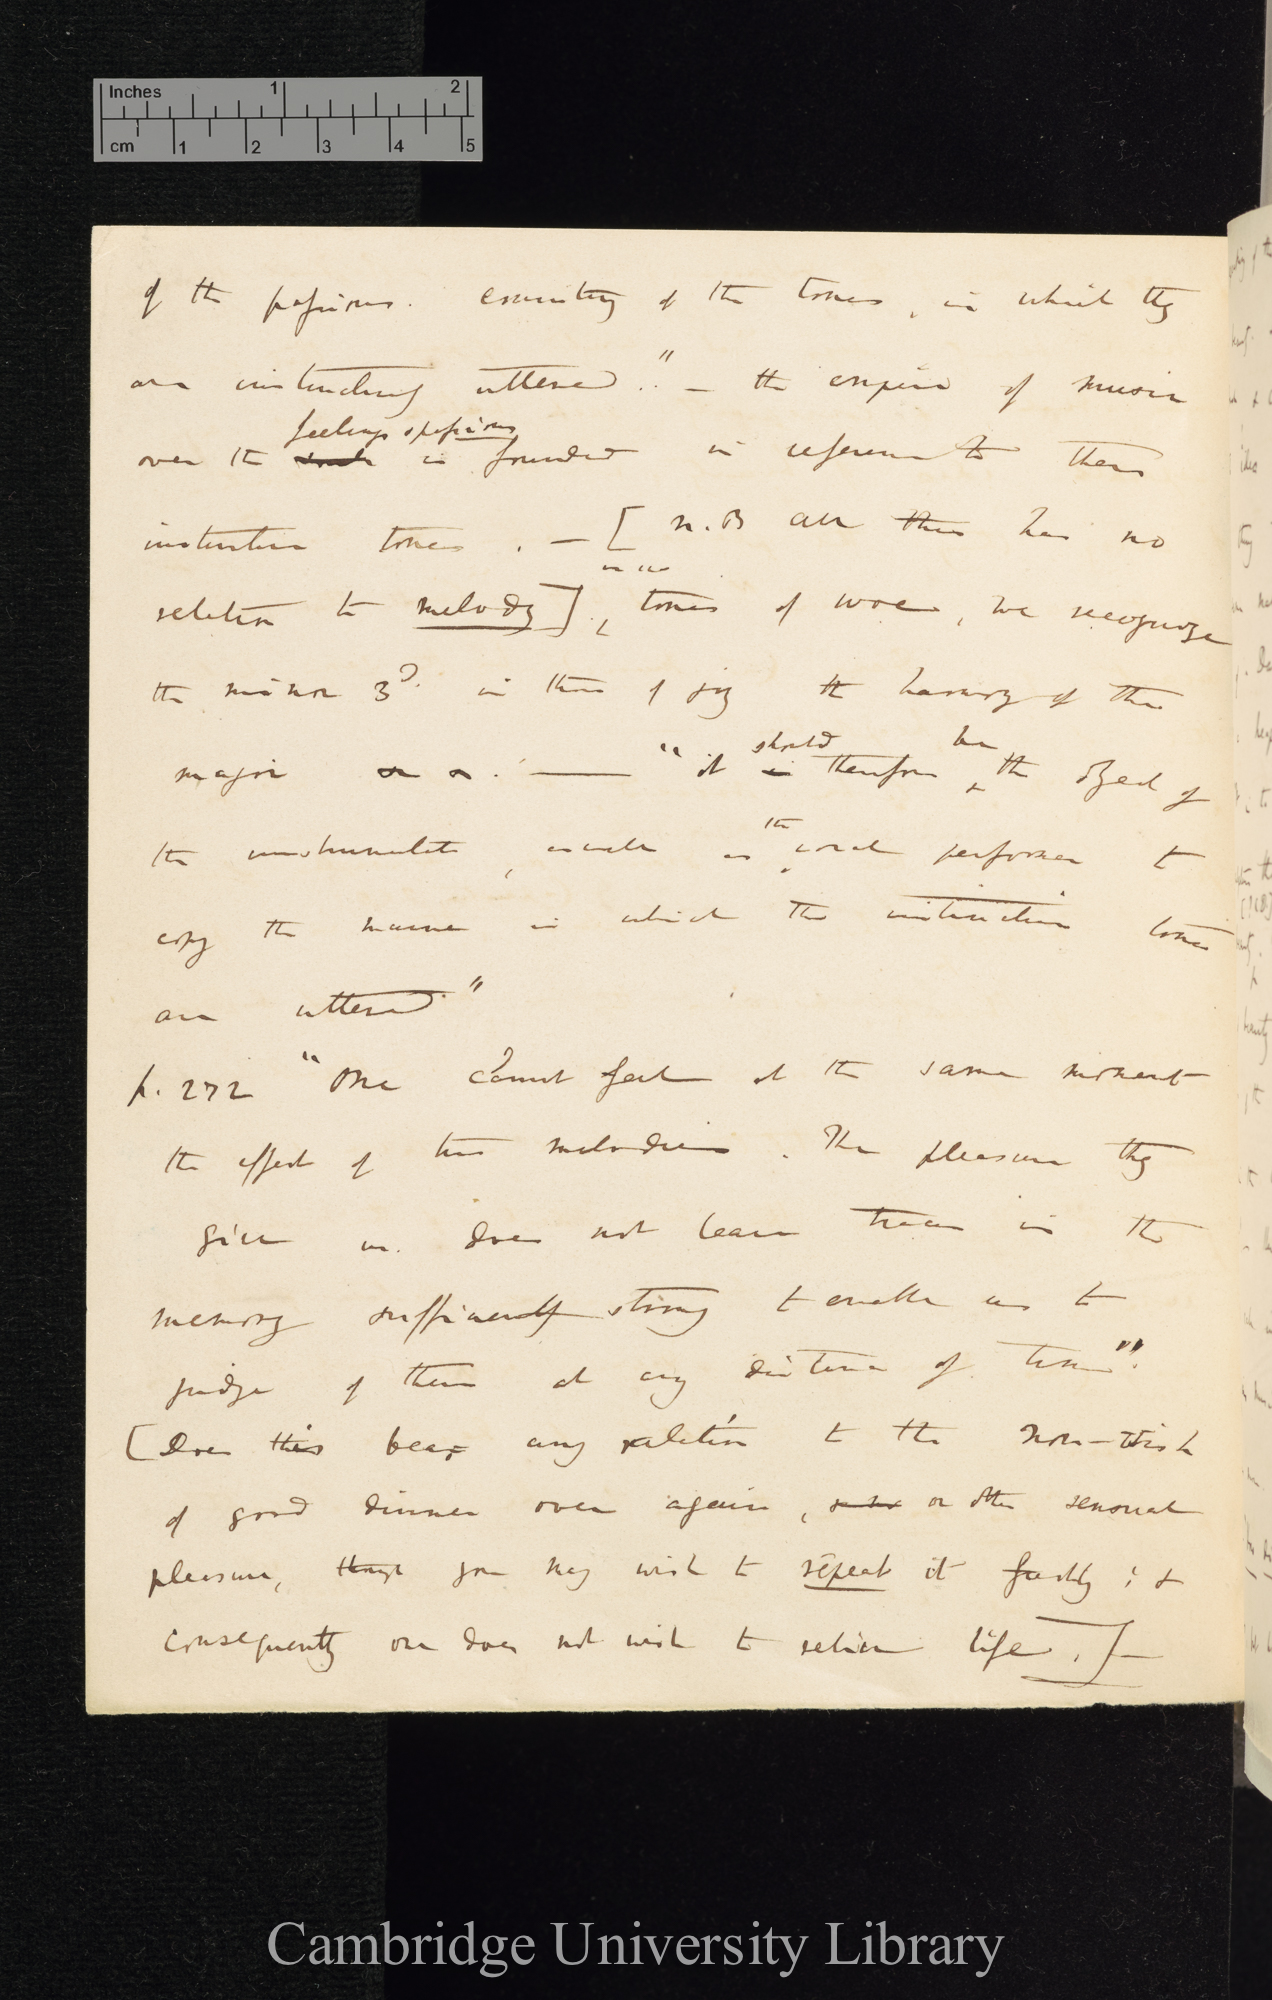 Inches 1 2
cm 1 2 3 4 5
of the passions. country of the tones, in which they
are instinctively uttered." — the empire of music
feelings & passions
over the is founded in reference to these
instinctive tones. — [N.B all this has no
relation to melody], in the tones of woe, we recognize
the minor 3d. in those of joy the harmony of the
major — "it should therefore be the object of
the instrumentalist, as well as the vocal performer to
copy the manner in which the instinctive tones
are uttered"
p. 272 "One cannot feel at the same moment
the effect of two melodies. The pleasure they
give us. does not leave traces in the
memory sufficiently strong to enable us to
judge of them at any distance of time".
[Does this bear any relation to the non-wish
of good dinner over again, or other sensual
pleasure, though you may wish to repeat it freshly; &
consequently one does not wish to relive life.]—
Cambridge University Library